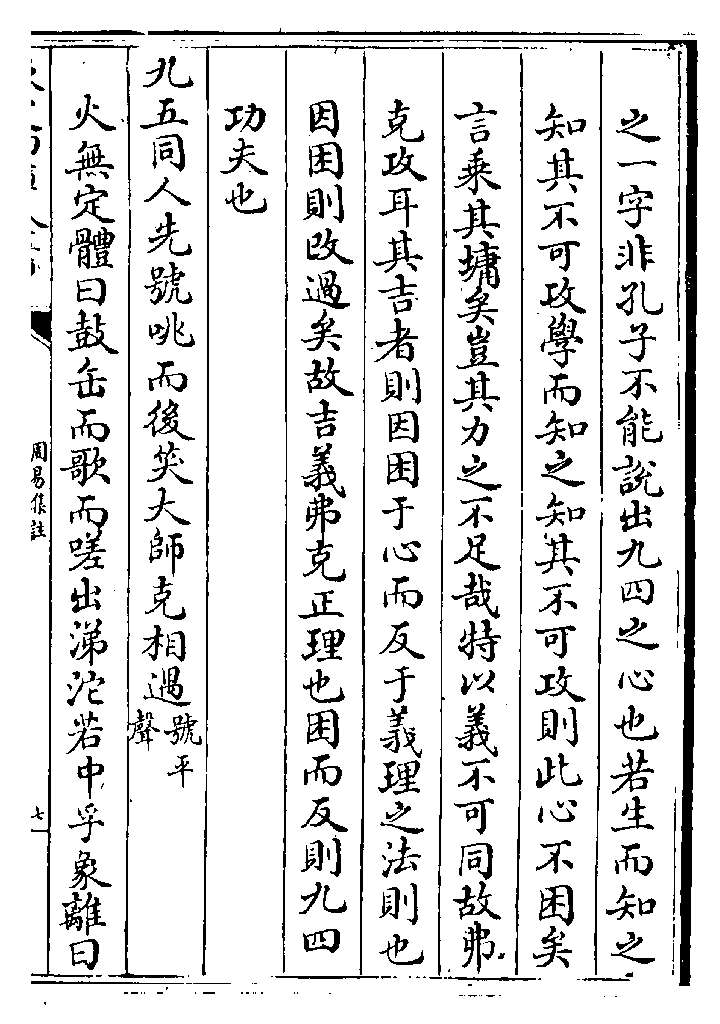 之一字非孔子不能説出九四之心也若生而知之
知其不可攻學而知之知其不可攻則此心不困矣
言乘其墉矣豈其力之不足哉特以義不可同故弗
克攻耳其吉者則因困于心而反于義理之法則也
因困則改過矣故吉義弗克正理也困而反則九四
功夫也
九五同人先號咷而後笑大師克相遇號平聲
火無定體曰鼓缶而歌而嗟出涕沱若中孚象離曰
周易集註
七